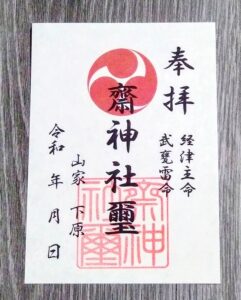 奉拝
経津主命
武甕雷命
齋神社璽
山家 下原
令和 年 月 日
齋神
社璽